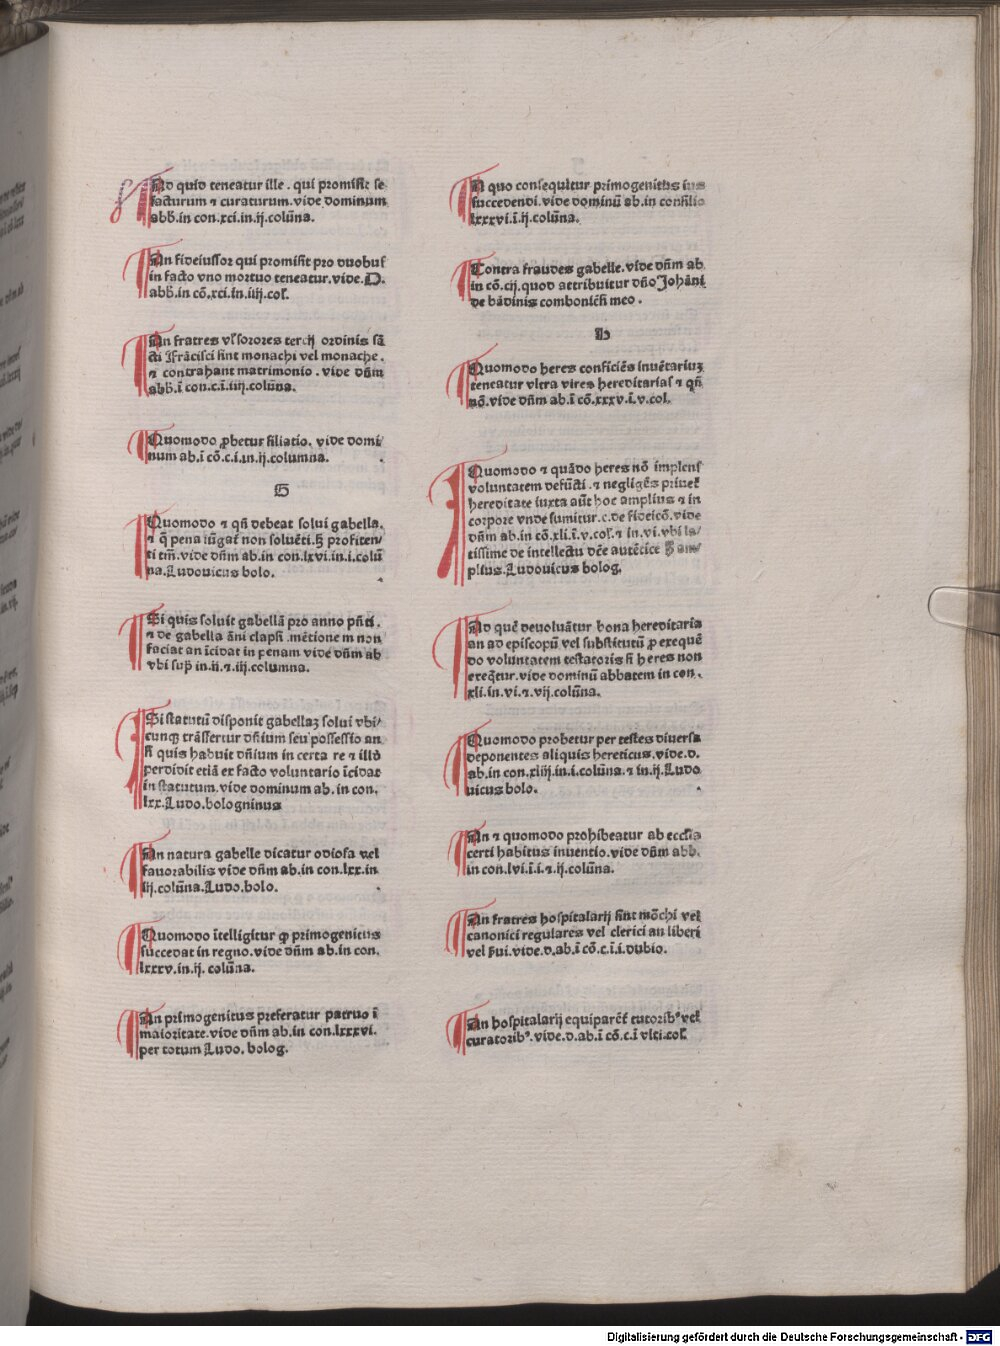 Ad quid teneatur ille . qui promisit se
facturum ⁊ curaturum. vide dominum
abb̄. in con. xci. in ij. colūna.
An fideiussor qui promisit pro duobus
in facto vno mortuo teneatur. vide. D.
abb̄. in cō. xci. in. iiij. col.
An fratres vl̓ sorores tercij ordinis sā
cti Frācisci sint monachi vel monache.
⁊ contrahant matrimonio . vide dn̄m
abb̄. ī con. c. ī. iiij. colūna.
Quomodo ꝓbetur filiatio. vide domi
num ab. ī cō. c. i. in. ij. columna.
G
Quomodo ⁊ qn̄ debeat solui gabella.
⁊ q̄ pena non soluēti. profiten
ti tm̄. vide dn̄m ab. in con. lxvi. in. i. colū
na. Ludouicus bolo.
Si quis soluit gabellā pro anno pn̄ti.
⁊ de gabella āni elapsi . mētionem non
faciat an īcidat in penam vide dn̄m ab
vbi sup̄ in. ii. ⁊. iij. columna.
Si statutū disponit gabellaꝫ solui vbi
cunqꝫ trāssertur dn̄ium seu possessio an
si quis habuit dn̄ium in certa re ⁊ illō
perdidit etiā ex facto voluntario īcidat
in statutum. vide dominum ab. in con.
lxx. Ludo. bologninus
An natura gabelle dicatur odiosa vel
fauorabilis vide dn̄m ab. in con. lxx. in
iij. colūna. Ludo. bolo.
Quomodo ītelligitur ꝙ primogenitus
succedat in regno. vide dn̄m ab. in con.
lxxxv. in. ij. colūna.
An primogenitus preferatur patruo ī
maioritate. vide dn̄m ab. in con. lxxxvi.
per totum Ludo. bolog.
A quo consequitur primogenitus ius
succedendi. vide dominū ab. in consilio
lxxxvi. ī. ij. colūna.
Contra fraudes gabelle. vide dn̄m ab
in cō. cij. quod attribuitur dn̄o Johāni
de bādinis meo .
h
Quomodo heres conficiēs inuētariuꝫ
teneatur vltra vires hereditarias ⁊ qn̄
nō. vide dn̄m ab. ī cō. xxxv. ī. v. col.
Quomodo ⁊ quādo heres nō implens
voluntatem defūcti . ⁊ negligēs priuet̄
hereditate iuxta aūt hoc amplius ⁊ in
corpore vnde sumitur. c. de fideicō. vide
dn̄m ab. in cō. xli. ī. v. col. ⁊ in. vi. vbi la
tissime de intellectu dc̄e autētice
plius. Ludouicus bolog.
Ad quē deuoluātur bona hereditaria
an ad episcopū vel substitutū ꝓ exequē
do voluntatem testatoris si heres non
exeq̄tur. vide dominū abbatem in con.
xli. in. vi. ⁊. vij. colūna.
Quomodo probetur per testes diuersa
deponentes aliquis hereticus. vide. d.
ab. in con. xliij. in. i. colūna. ⁊ in. ij. Ludo
uicus bolo.
An ⁊ quomodo prohibeatur ab eccl̓ia
certi habitus inuentio. vide dn̄m abb.
in con. lvi. ī. i. ⁊. ij. colūna.
An fratres hospitalarij sint mōchi vel
canonici regulares vel clerici an liberi
vel ẜui. vide. d. ab. ī cō. c. i. ī. dubio.
An hospitalarij equiparēt̄ tutoribꝰ vel
curatoribꝰ. vide. d. ab. ī cō. c. ī vlti. col.
Digitalisierung gefördert durch die Deutsche Forschungsgemeinschaft - DFG